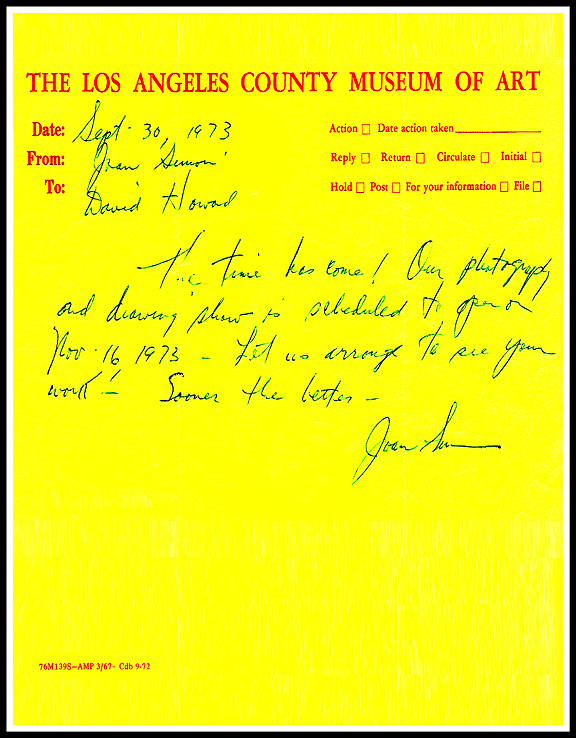 THE LOS ANGELES COUNTY MUSEUM OF ART
Date: Sept. 30, 1973
Action □ Date action taken
From: Joan Simon
Reply □ Return □ Circulate □ Initial □
To: David Howard
Hold □ Post □ For your information □ File □
The time has come! Our photography
and drawing show is scheduled to open on
Nov. 16 1973 – Let us arrange to see your
work! – Sooner the better –
Joan
76M139S–AMP 3/67– Cdb 9-72